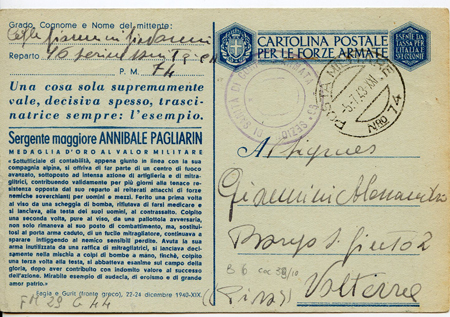 Grado, Cognome e Nome del mittente:
Giannini
Reparto
P. M. 74
Una cosa sola supremamente
vale, decisiva spesso, trasci-
natrice sempre: l'esempio.
Sergente maggiore ANNIBALE PAGLIARIN
MEDAGLIA D'ORO AL VALOR MILITARE
« Sottufficiale di contabilità, appena giunto in linea con la sua
compagnia alpina, si offriva di far parte di un centro di fuoco
avanzato, sottoposto ad intensa azione di artiglieria e di mitra-
gliatrici, contribuendo validamente per più giorni alla tenace re-
sistenza opposta dal suo reparto ai reiterati attacchi di forze
nemiche soverchianti per uomini e mezzi. Ferito una prima volta
al viso da una scheggia di bomba, rifiutava di farsi medicare e
si lanciava, alla testa dei suoi uomini, al contrassalto. Colpito
una seconda volta, pure al viso, da una pallottola avversaria,
non solo rimaneva al suo posto di combattimento, ma, sostitui-
tosi al porta arma caduto, di un fucile mitragliatore, continuava a
sparare infliggendo al nemico sensibili perdite. Avuta la sua
arma inutilizzata da una raffica di mitragliatrici, si lanciava deci-
samente nella mischia a colpi di bombe a mano, finchè, colpito
una terza volta al viso, si abbatteva esanime sul campo della
gloria, dopo aver contribuito con indomito valore al successo
dell'azione. Mirabile esempio di audacia, di eroismo e di grande
amor patrio.
(fronte greco), 22-24 dicembre 1940-XIX
CARTOLINA POSTALE
PER LE FORZE ARMATE
ESENTE DA
TASSA PER
L'ITALIA E
SUE COLONIE
POSTA MILITARE
Nº 74
Giannini
Borgo S. Giusto 2
Volterra
(Pisa)
B 6